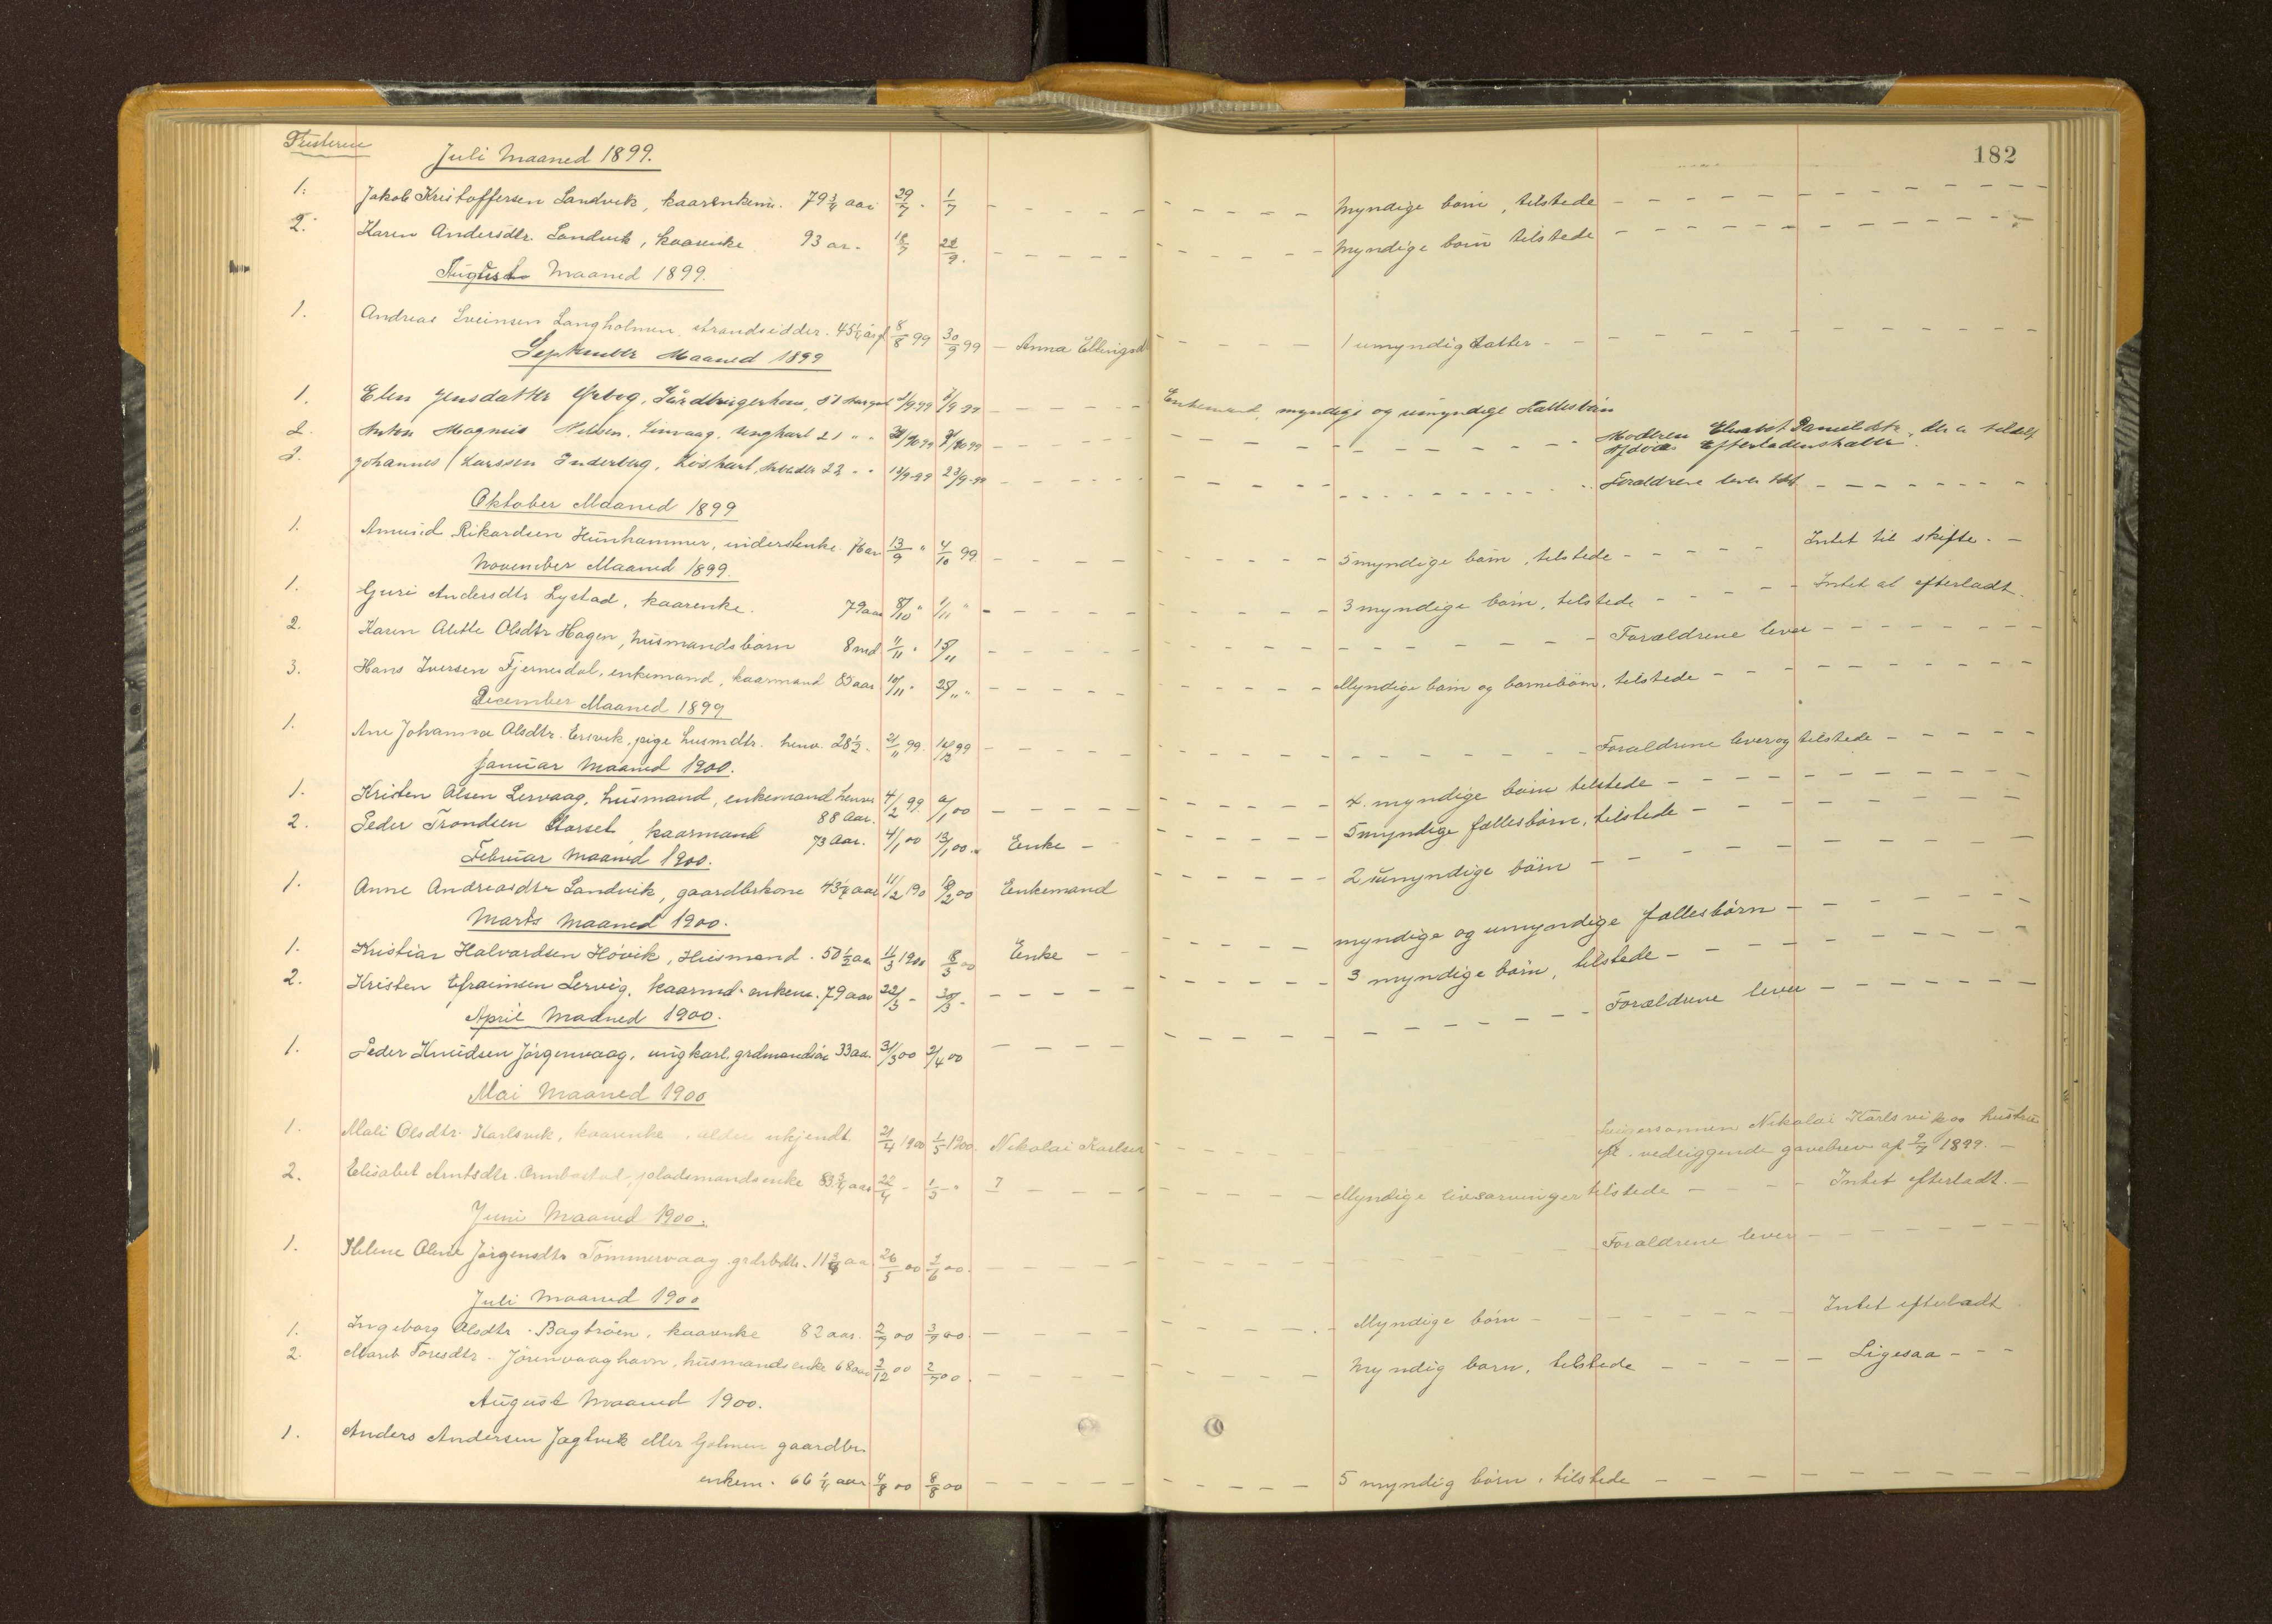 Tusteren
Juli Maaned 1899.
182
1. Jakob Kristoffersen Sandvik, kaarenkem. 79 3/4 aar 29/7 - 1/7 Myndige børn, tilstede
2. Karen Andersdtr. Sandvik, kaarenke 93 ar - 18/7 22/9 Myndige børn tilstede
August Maaned 1899.
1. Andreas Sveinsen Langholmen, strandsidder. 45 1/4 år gl 8/8 99 30/9 99 - Anna Ellingsd 1 umyndig datter
September Maaned 1899
1. Elen Jensdatter Ørbog, 9-99 /9-99 Enkemand, myndige og umyndige Fællesbørn
2. Anton Magnus Nilsen, ungkarl 21 " " Moderen Elisabet der er tildelt
Afdødes Efterladenskaber
3. Johannes Larssen Inderberg, 22 " " 13/9-99 23/9-99 Forældrene lever
Oktober Maaned 1899
1. Amund Rikardsen Hunhammer, 13/9 " 4/10 99 5 myndige børn, tilstede Intet til skifte.
November Maaned 1899.
1. Guri Andersdtr Lystad, kaarenke. 79 aar 8/10 " 1/11 " 3 myndige børn, tilstede Intet at efterladt.
2. Karen Aletle Olsdtr Hagen, husmandsbarn 8 md 1/11 " 15/11 Forældrene lever
3. Hans Iversen Fjernesdal, enkemand, kaarmand 85 aar 10/11 " 28/11 " Myndige børn og børnebørn, tilstede
December Maaned 1899
1. Ane Johanna Olsdtr. Ersvik, pige husmdtr. 28 1/2 21/11 99. 12 99 Forældrene lever og tilstede
Januar Maaned 1900.
1. Kristen Olsen Lervaag, husmand, enkemand 4/2 99 /1 00 4 myndige børn tilstede
88 Aar.
2. Peder Trondsen Storset kaarmand 73 Aar. 4/1 00 13/1 00 Enke - 5 myndige fællesbørn, tilstede
Februar Maaned 1900.
1. Anne Andreasdtr Sandvik, gaardbrkone 43 1/4 aar 11/2 190 18/2 00 Enkemand 2 umyndige børn
Marts Maaned 1900.
1. Kristian Halvardsen Høvik, Husmand. 50 1/2 aar 1/3 1900 8/3 00 Enke - myndige og umyndige fællesbørn
2. Kristen Efraimsen Lervig, kaarmd. enkem. 79 aar 22/3 - 30/3 - 3 myndige børn, tilstede
April Maaned 1900.
1. Peder Knudsen Jørgenvaag, ungkarl, grdmandsøn 33 aar 31/3 00 2/4 00 Forældrene lever
Mai Maaned 1900
1. Mali Olsdtr. Karlsvik, kaarenke, alder ukjendt 21/4 1900 1/5 1900. Nikolai Karlsen Svigersønnen Nikolai Karlsvik og hustru
vedliggende gavebrev af 9/7 1899.
2. Elisabet Arntsdtr. Ormbostad, pladsmandsenke 83 3/4 aar 22/4 - 1/5 - " ? Myndige livsarvinger tilstede Intet efterladt.
Juni Maaned 1900.
1. Helene Oline Jørgensdtr Tømmervaag grdrbdtr. 11 3/4 aar 26/5 00 2/6 00. Forældrene lever
Juli Maaned 1900
1. Ingeborg Olsdtr. Bagtrøen, kaarenke 82 aar. 2/7 00 3/7 00. Myndige børn Intet efterladt.
2. Marit Toresdtr - Jørenvaaghavn, husmandsenke 68 aar 3/12 00 2/7 00. Myndig barn, tilstede Ligesaa
August Maaned 1900.
1. Anders Andersen Jagtvik eller Golmen gaardbr.
enkem. 66 1/4 aar. 4/8 00 8/8 00 5 myndig børn, tilstede